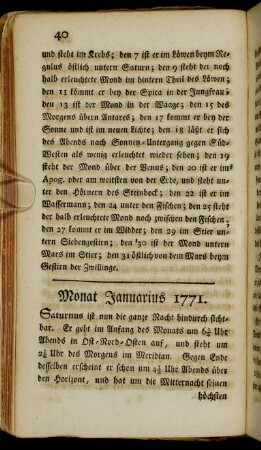 40
und steht im Krebs; den 7 ist er im Löwen beym Re-
gulus östlich untern Saturn; den 9 steht der noch
halb erleuchtete Mond im hintern Theil des Löwen;
den 11 kömmt er bey der Spica in der Jungfrau;
den 13 ist der Mond in der Waage; den 15 des
Morgens übern Antares; den 17 kommt er bey der
Sonne und ist im neuen Lichte; den 18 läßt er sich
des Abends nach Sonnen-Untergang gegen Süd-
Westen als wenig erleuchtet wieder sehen; den 19
steht der Mond über der Venus; den 20 ist er im
Apog. oder am weitsten von der Erde, und steht un-
ter den Hörnern des Steinbock; den 22 ist er im
Wassermann; den 24 unter den Fischen; den 25 steht
der halb erleuchtete Mond noch zwischen den Fischen,
den 27 kommt er im Widder; den 29 im Stier un-
tern Siebengestirn; den 30 ist der Mond untern
Mars im Stier; den 31 östlich von dem Mars beym
Gestirn der Zwillinge.
Monat Januarius 1771.
Saturnus ist nun die ganze Nacht hindurch sicht-
bar. Er geht im Anfang des Monats um 6¾ Uhr
Abends in Ost-Nord-Osten auf, und steht um
2¼ Uhr des Morgens im Meridian. Gegen Ende
desselben erscheint er schon um 4½ Uhr Abends über
den Horizont, und hat um die Mitternacht seinen
höchsten